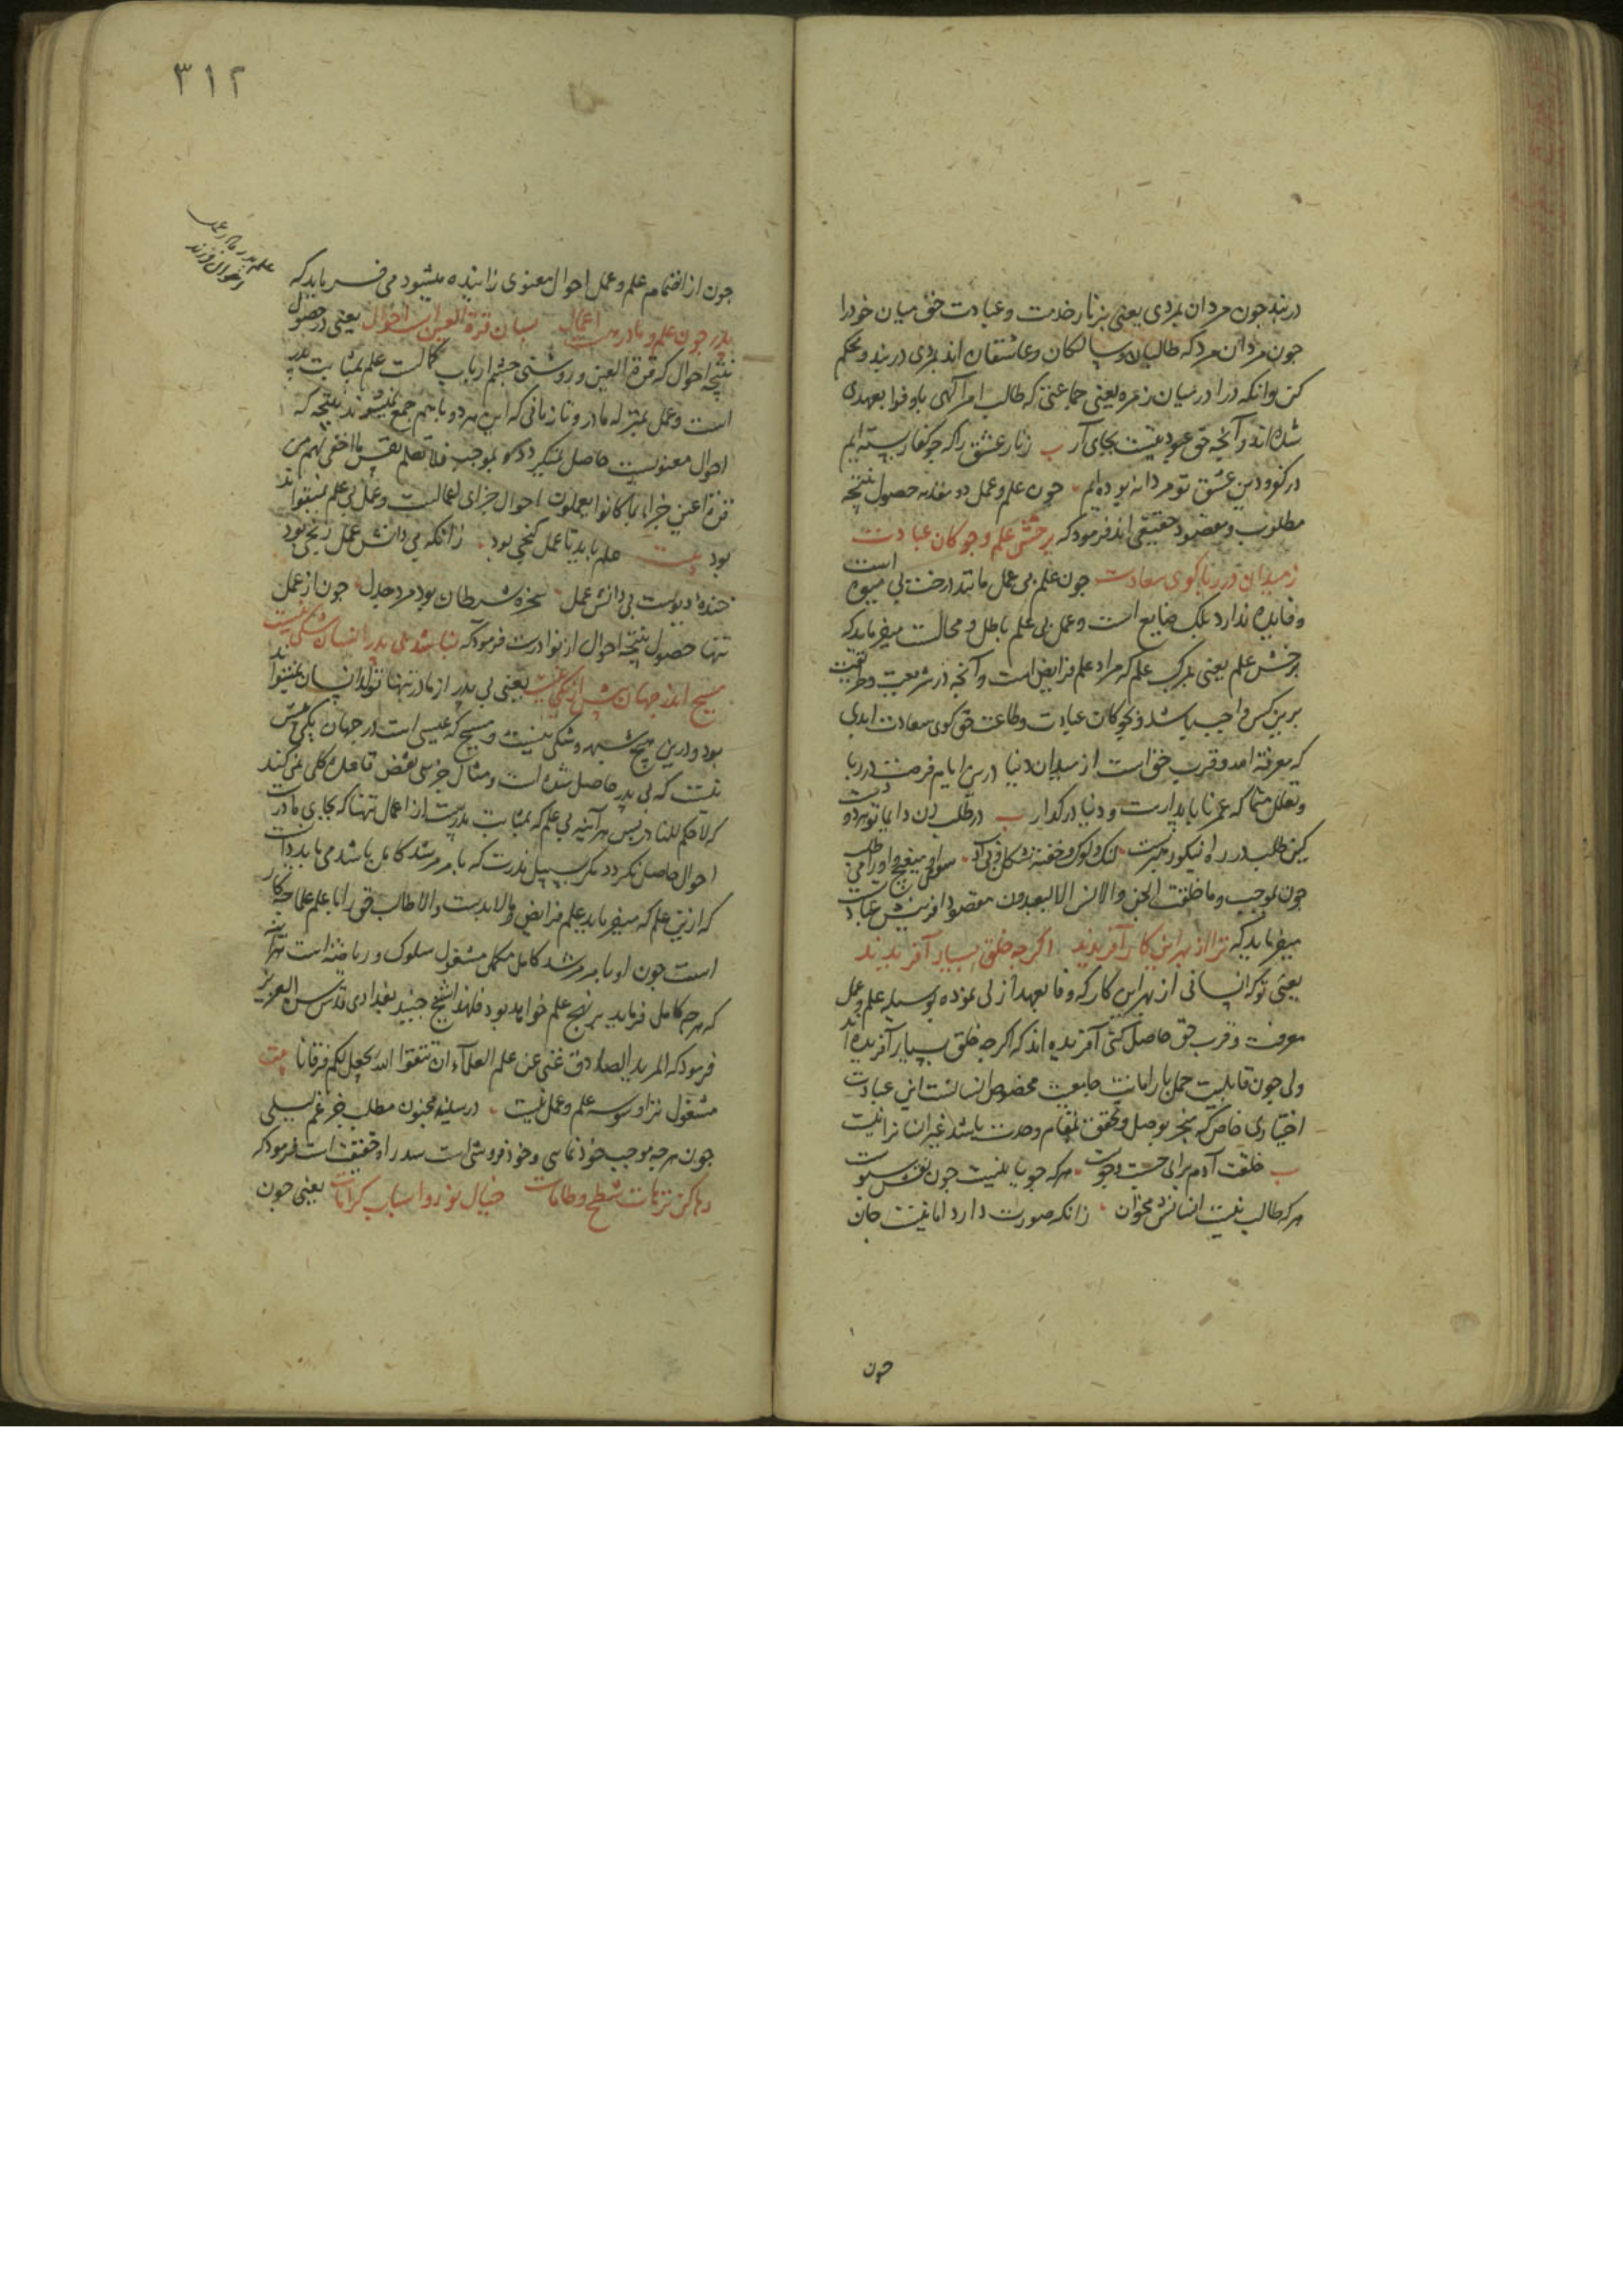 در بند چون مردان بمردی یعنی بزنار خدمت و عبادت حق میان خود را
چون مردان مرد که طالبان و سالکان و عاشقان اند بمردی در بند و محکم
کن وانکه درآ در میان زمره یعنی جماعتی که طالب امر آلهی باوفوا بعهدی
شده اند و آنچه حق عبودیتست بجای آر ب زنار عشق را که چو کفار بسته ایم
در کفر و دین عشق تو مردانه بوده ایم چون علم و عمل دو مقدمه حصول نتیجه
مطلوب و مقصود حقیقی اند فرمود که برخش علم و چوکان عبادت
ز میدان در ربا کوی سعادت چون علم بی عمل مانند درخت بی میوه است
و فایده ندارد بلک ضایع است و عمل بی علم باطل و محالست میفرماید که
برخش علم یعنی بمرکب علم که مراد علم فرایض است و آنچه در شریعت و طریقت
بر بین کس واجب باشد و بچوکان عبادت و طاعت حق کوی سعادت ابدی
که معرفة الله و قرب حق است از میدان دنیا درین ایام فرصت در ربا
و تعلل منما که عمر ناپایدارست و دنیا در کذار ب در طلب زن دایما تو هر دو دست
کین طلب در راه نیکو رهبرست لنک و لوک و خفته شکل و بی ادب سوی او میغیژ و او را می طلب
چون بموجب و ما خلقت الجن والانس الا لیعبدون مقصود افرینش عبادت
میفرماید که ترا از بهر این کار آفریدند اکرچه خلق بسیار آفریدند
یعنی تو که انسانی از بهر این کار که وفا بعهد ازلی نموده بوسیله علم و عمل
معرفت و قرب حق حاصل کنی آفریده اند که اکرچه خلق بسیار آفریده اند
ولی چون قابلیت حمل بار امانت جامعیت مخصوص انسانست این عبادت
اختیاری خاص که منجر بوصل و تحقق بمقام وحدت باشد غیر انسانرا نیست
ب خلقت آدم برای جست و جوست هر که جویا نیست چون نقش سبوست
هر که طالب نیست انسانش مخوان زانکه صورت دارد اما نیست جان
چون
۳۱۲
علم پدر مادر عمل
احوال فرزند
چون از انضمام علم و عمل احوال معنوی زاینده میشود می فرماید که
پدر چون علم و مادر هست اعمال بسان قرة العین است احوال یعنی در حصول
نتیجه احوال که قرة العین و روشنی چشم ارباب کمالست علم بمثابت پدر
است و عمل بمنزله مادر و تا زمانی که این هر دو باهم جمع نمیشوند نتیجه که
احوال معنویست حاصل نمیکردد که بموجب فلا تعلم نفس ما اخفی لهم من
قرة اعین جزاء بما کانوا یعملون احوال جزای اعمالست و عمل بی علم نمیتواند
بود بیت علم باید تا عمل کنجی بود زانکه بی دانش عمل رنجی بود
خنده دیوست بی دانش عمل سخره شیطان بود مرد جدل چون از عمل
تنها حصول نتیجه احوال از نوادرست فرمود که نباشد بی پدر انسان شکی نیست
مسیح اندر جهان بیش از یکی نیست یعنی بی پدر از مادر تنها تولد انسان نمیتواند
بود و درین هیچ شبهه و شکی نیست و مسیح که عیسی است در جهان یکی بیش
نیست که بی پدر حاصل شده است و مثال جزئی نقض قاعده کلی نمی کند
که لا حکم للنادر پس هر آینه بی علم که بمثابت پدرست از اعمال تنها که بجای مادرست
احوال حاصل نکردد مکر بسبیل ندرت که بامر مرشد کامل باشد می باید دانست
که ازین علم که میفرماید علم فرایض و مالابدست والا طالب حق را با علم علما چه کار
است چون او بامر مرشد کامل مکمل مشغول سلوک و ریاضتست هر آینه
که هر چه کامل فرماید بر نهج علم خواهد بود فلهذا شیخ جنید بغدادی قدس سره العزیز
فرمود که المرید الصادق غنی عن علم العلمآء ان تتقوا الله یجعل لکم فرقانا بیت
مشغول ترا وسوسه علم و عمل نیست در سینه مجنون مطلب جز غم لیلی
چون هر چه موجب خودنمایی و خودفروشی است سد راه حقیقت است فرمود که
رها کن ترهات شطح و طامات خیال نور و اسباب کرامات یعنی چون